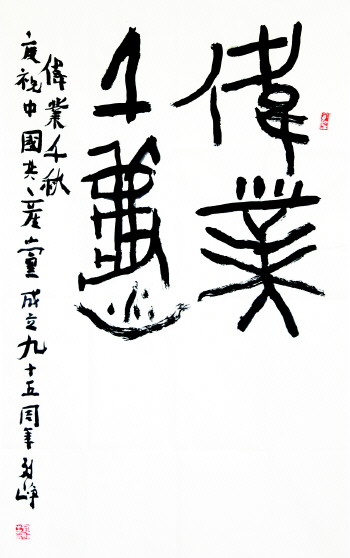 偉業
千秋
偉業千秋
慶祝中國共産黨成立九十五周年